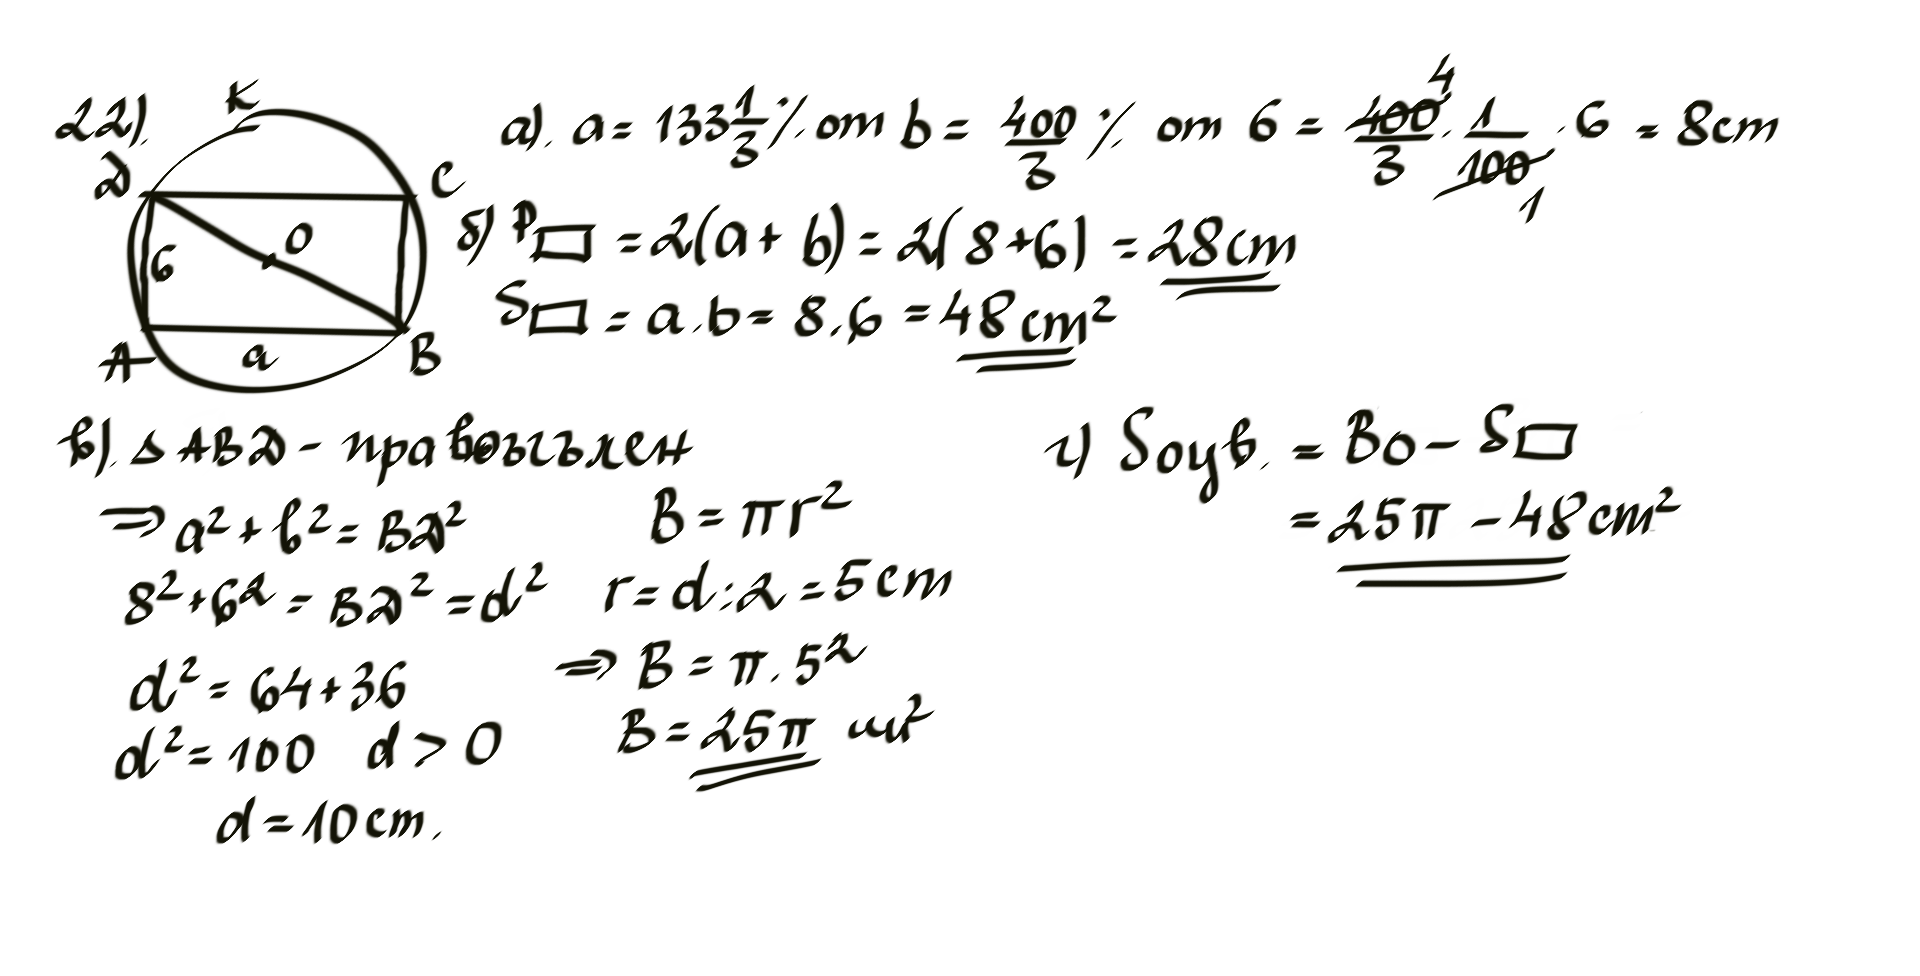 22).
К
Д
С
6
О
А
а
В
а). a = 133 1/3 % от b = 400/3 % от 6 = 400/3 . 1/100 . 6 = 8cm
4
1
б) P▭ = 2(a + b) = 2(8+6) = 28cm
S▭ = a.b = 8.6 = 48cm²
в). Δ АВД - правоъгълен
⇒ a² + b² = ВД²
8² + 6² = ВД² = d²
d² = 64+36
d² = 100 d > 0
d = 10cm.
B = πr²
r = d:2 = 5cm
⇒ B = π.5²
B = 25π cm²
г) Sоцв. = Bo - S▭
= 25π - 48cm²